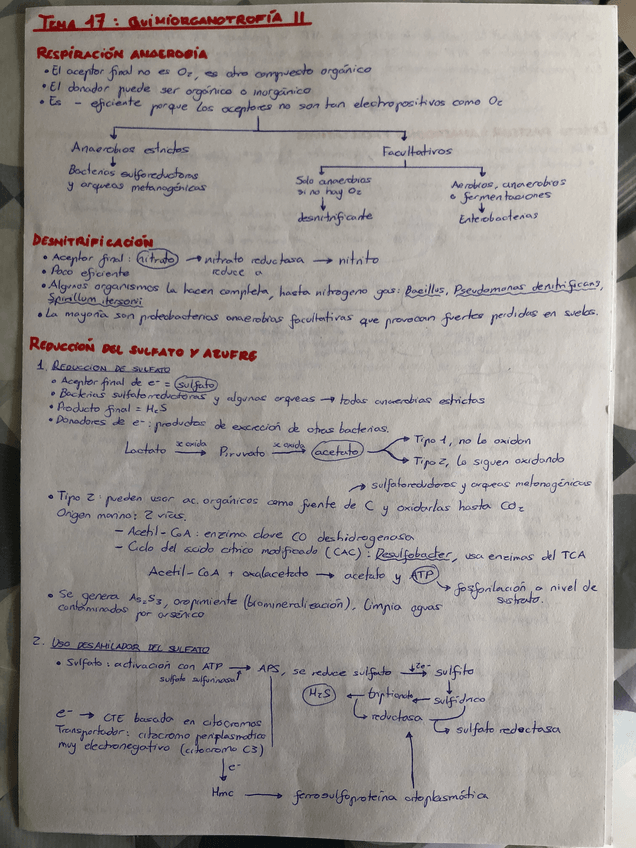 TEMA 17: QUIMIORGANOTROFÍA II
RESPIRACIÓN ANAEROBIA
• El aceptor final no es O₂, es otro compuesto orgánico
• El donador puede ser orgánico o inorgánico
• Es - eficiente porque los aceptores no son tan electropositivos como O₂
Anaerobios estrictos
Facultativos
Bacterias sulforeductoras
y arqueas metanogénicas
Solo anaerobios
si no hay O₂
Aerobios, anaerobios
o fermentaciones
desnitrificante
Enterobacterias
DESNITRIFICACIÓN
• Aceptor final: nitrato → nitrato reductasa → nitrito
• Poco eficiente reduce a
• Algunos organismos la hacen completa, hasta nitrogeno gas: Bacillus, Pseudomonas denitrificans,
Spirillum itersonii
• La mayoría son proteobacterias anaerobias facultativas que provocan fuertes perdidas en suelos.
REDUCCIÓN DEL SULFATO Y AZUFRE
1. REDUCCIÓN DE SULFATO
• Aceptor final de e⁻ = sulfato
• Bacterias sulfatoreductoras y algunas arqueas → todas anaerobias estrictas
• Producto final = H₂S
• Donadores de e⁻: productos de excreción de otras bacterias.
Lactato x oxida → Piruvato x oxida → acetato
Tipo 1, no lo oxidan
Tipo 2, lo siguen oxidando
→ sulfatoreductores y arqueas metanogénicas
• Tipo 2: pueden usar ac. orgánicos como fuente de C y oxidarlas hasta CO₂
Origen marino: 2 vias.
– Acetil-CoA: enzima clave CO deshidrogenasa
– Ciclo del ácido cítrico modificado (CAC): Desulfobacter, usa enzimas del TCA
Acetil-CoA + oxalacetato → acetato y ATP
→ fosforilación a nivel de
sustrato.
• Se genera As₂S₃, oropimiente (biomineralización). Limpia aguas
contaminadas por arsénico
2. USO DESAMILADOR DEL SULFATO
• Sulfato: activación con ATP → APS, se reduce sulfato 2e⁻ → sulfito
sulfato
H₂S ← ← sulfidrico
→ reductasa
→ sulfato reductasa
e⁻ → CTE basada en citocromos
Transportador: citocromo periplasmático
muy electronegativo (citocromo C3)
↓ e⁻
Hmc → ferrosulfoproteína citoplasmática